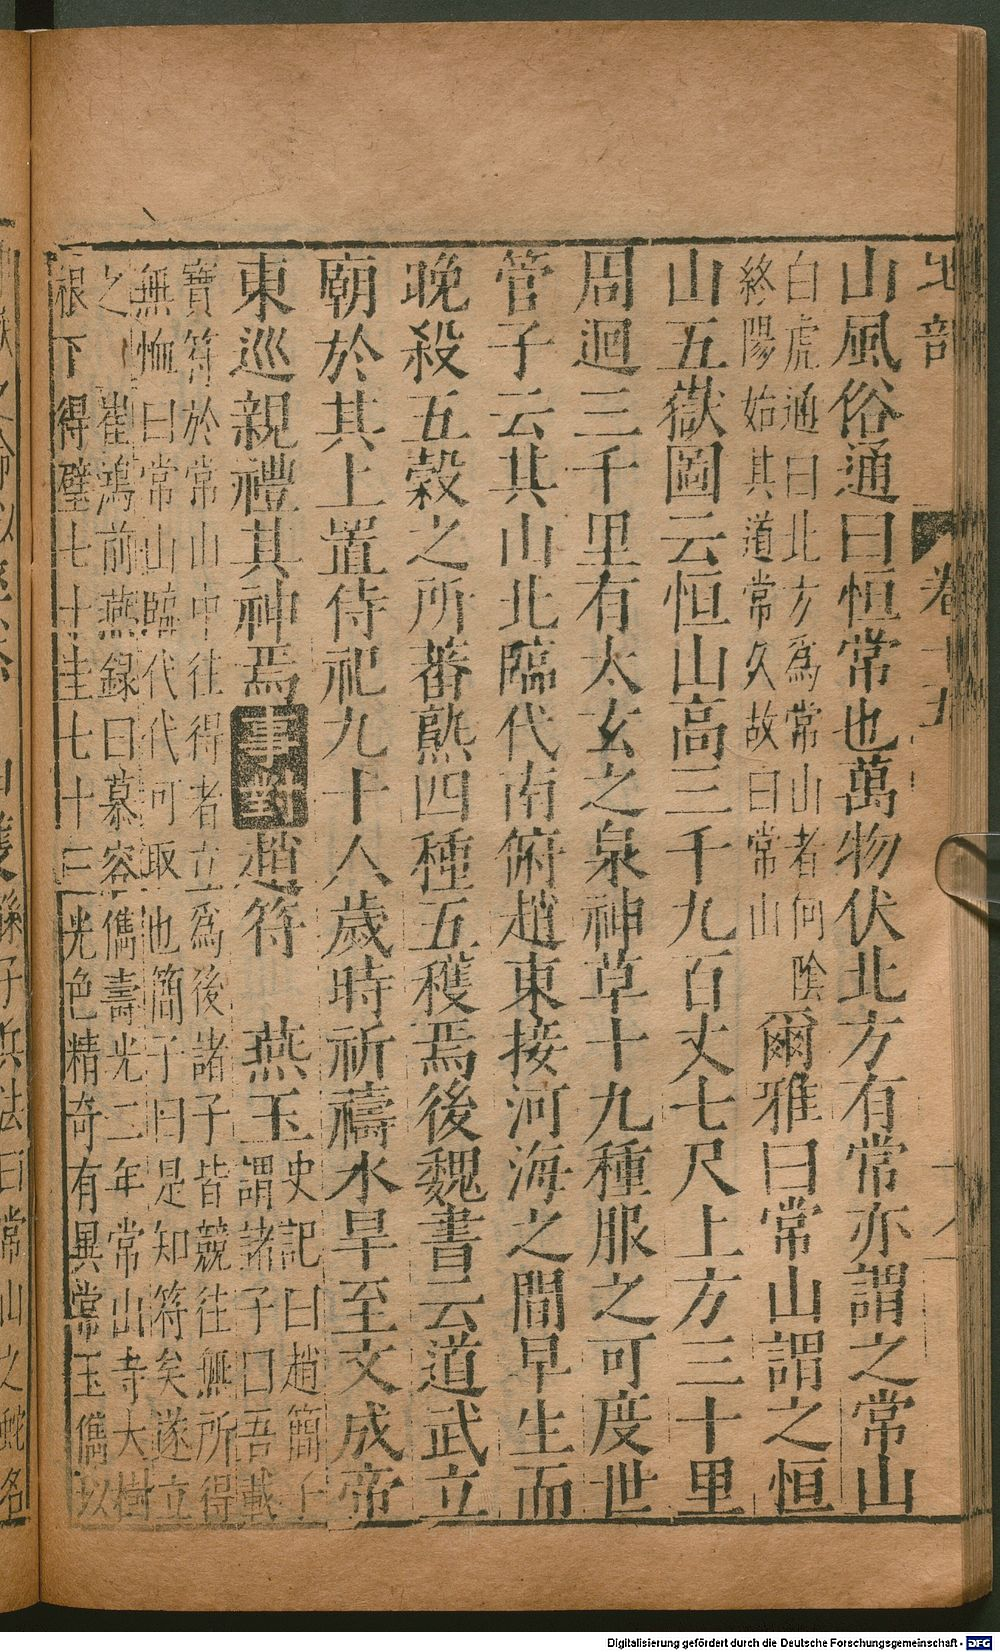 地部
卷十五
山風俗通曰恒常也萬物伏北方有常亦謂之常山
白虎通曰北方爲常山者何陰
終陽始其道常久故曰常山
爾雅曰常山謂之恒
山五嶽圖云恒山高三千九百丈七尺上方三十里
周迴三千里有太玄之泉神草十九種服之可度世
管子云其山北臨代南俯趙東接河海之間早生而
晚殺五穀之所蕃熟四種五穫焉後魏書云道武立
廟於其上置侍祀九十人歲時祈禱水旱至文成帝
東巡親禮其神焉事對趙符 燕玉
史記曰趙簡子
謂諸子曰吾載
寶符於常山中往得者立爲後諸子皆競往無所得
無恤曰常山臨代代可取也簡子曰是知符矣遂立
之 崔鴻前燕録曰慕容儁壽光二年常山寺大樹
根下得璧七十圭七十三光色精奇有異常玉儁以
孫子兵法曰常山之蛇名
Digitalisierung gefördert durch die Deutsche Forschungsgemeinschaft - DFG